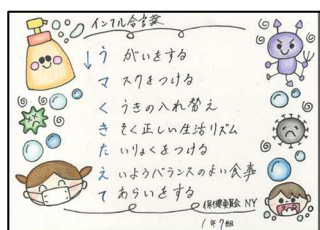 インフル合言葉
うがいをする
マスクをつける
くうきの入れ替え
きそく正しい生活リズム
たいりょくをつける
えいようバランスのよい食事
てあらいをする
保健委員 NY
1年7組